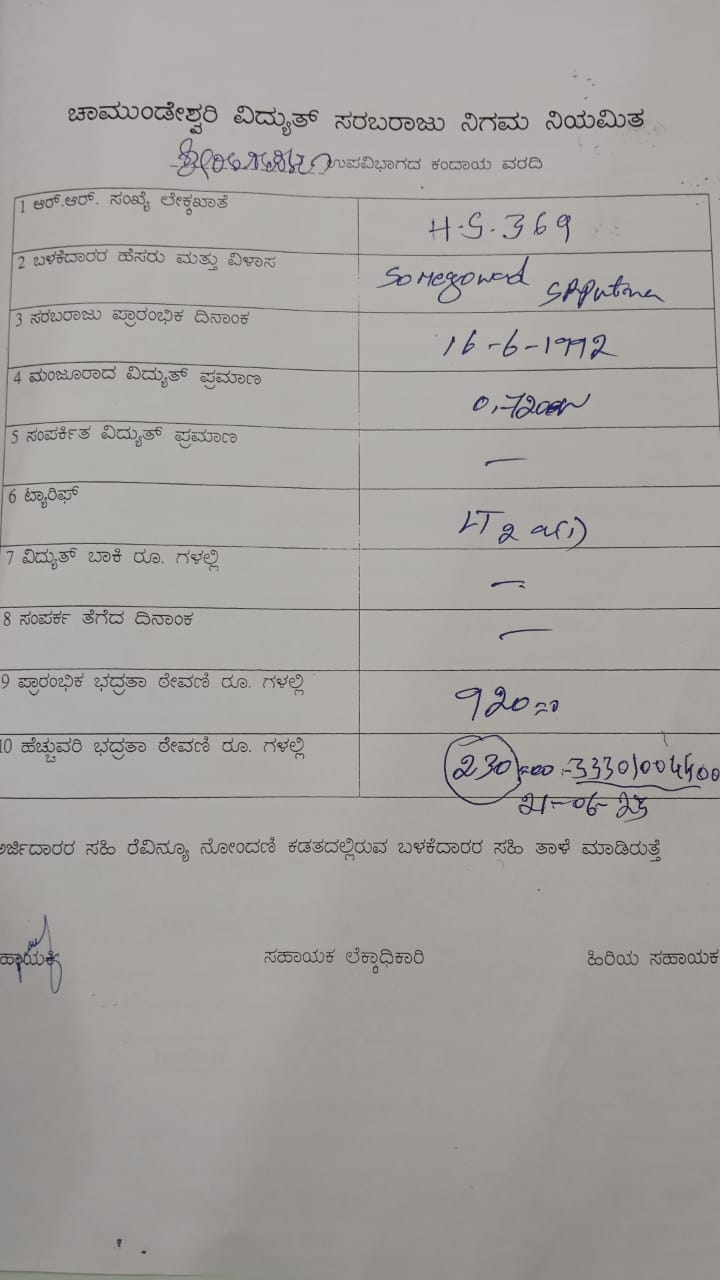 ಚಾಮುಂಡೇಶ್ವರಿ ವಿದ್ಯುತ್ ಸರಬರಾಜು ನಿಗಮ ನಿಯಮಿತ
ಉಪವಿಭಾಗದ ಕಂದಾಯ ವರದಿ
1 ಆರ್.ಆರ್. ಸಂಖ್ಯೆ ಲೇಕ್ಕಖಾತೆ H.S.369
2 ಬಳಕೆದಾರರ ಹೆಸರು ಮತ್ತು ವಿಳಾಸ
3 ಸರಬರಾಜು ಪ್ರಾರಂಭಿಕ ದಿನಾಂಕ 16-6-1992
4 ಮಂಜೂರಾದ ವಿದ್ಯುತ್ ಪ್ರಮಾಣ
5 ಸಂಪರ್ಕಿತ ವಿದ್ಯುತ್ ಪ್ರಮಾಣ —
6 ಟ್ಯಾರಿಫ್ LT 2 a(i)
7 ವಿದ್ಯುತ್ ಬಾಕಿ ರೂ. ಗಳಲ್ಲಿ —
8 ಸಂಪರ್ಕ ತೆಗೆದ ದಿನಾಂಕ —
9 ಪ್ರಾರಂಭಿಕ ಭದ್ರತಾ ಠೇವಣಿ ರೂ. ಗಳಲ್ಲಿ 920=00
10 ಹೆಚ್ಚುವರಿ ಭದ್ರತಾ ಠೇವಣಿ ರೂ. ಗಳಲ್ಲಿ 230=00
21-06-23
ಅರ್ಜಿದಾರರ ಸಹಿ ರೆವಿನ್ಯೂ ನೋಂದಣಿ ಕಡತದಲ್ಲಿರುವ ಬಳಕೆದಾರರ ಸಹಿ ತಾಳೆ ಮಾಡಿರುತ್ತೆ
ಸಹಾಯಕ ಲೆಕ್ಕಾಧಿಕಾರಿ ಹಿರಿಯ ಸಹಾಯಕ